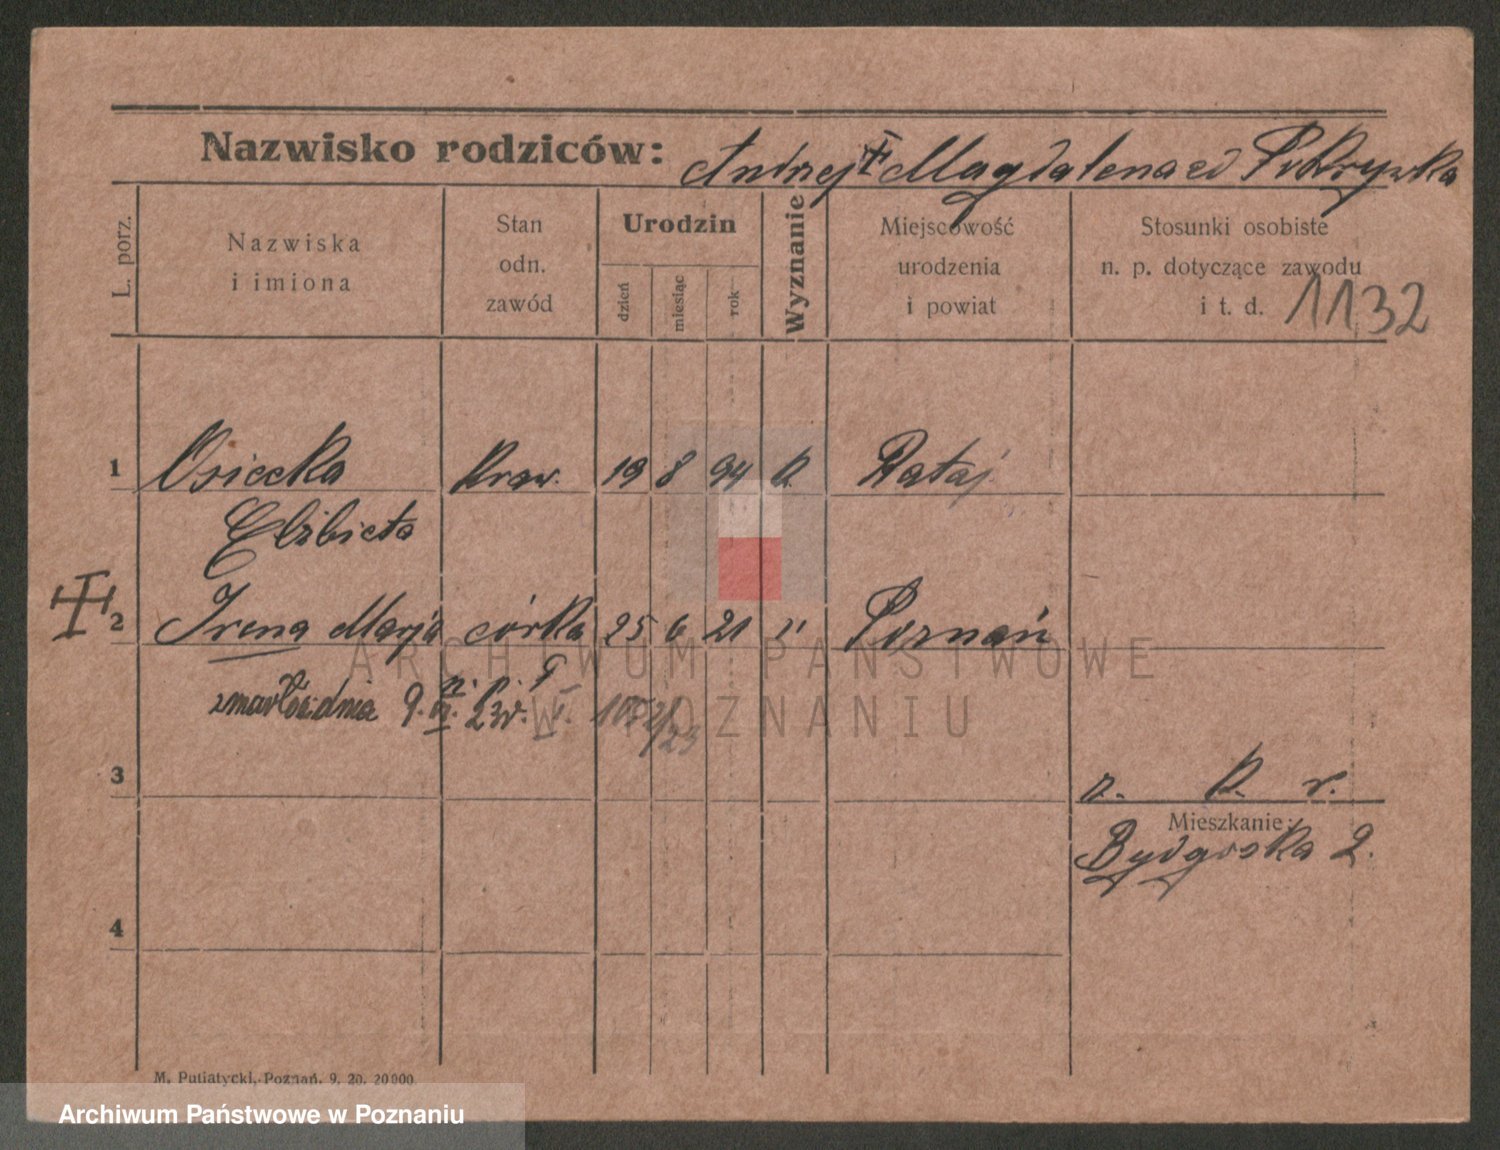 Nazwisko rodziców: Andrzej Magdalena zd
L. porz.
Nazwiska i imiona
Stan odn. zawód
Urodzin
dzień
miesiąc
rok
Wyznanie
Miejscowość urodzenia i powiat
Stosunki osobiste n. p. dotyczące zawodu i t. d. 1132
1 Osiecka Kraw. 19 8 94 k. Rataj
Elżbieta
2 Irena Marja córka 25 6 21 " Poznań
zmarła dnia 9.
3
k. r.
Mieszkanie:
Bydgoska 2.
4
M. Putiatycki, Poznań. 9. 20. 20000
ARCHIWUM PAŃSTWOWE
W POZNANIU
Archiwum Państwowe w Poznaniu